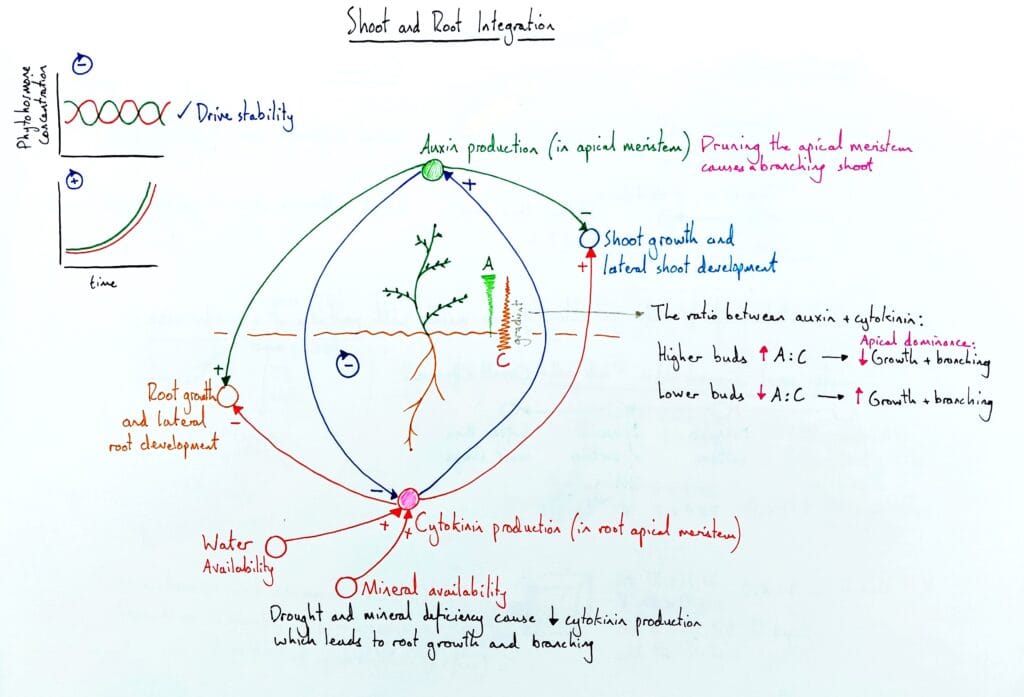 Shoot and Root Integration
Phytohormone
concentration
-
✓ Drive stability
+
time
Auxin production (in apical meristem)
Pruning the apical meristem
causes a branching shoot
+
-
Shoot growth and
lateral shoot development
+
A
gradient
C
The ratio between auxin + cytokinin:
Apical dominance:
Higher buds ↑ A:C → ↓ Growth + branching
Lower buds ↓ A:C → ↑ Growth + branching
-
+
Root growth
and lateral
root development
-
-
Cytokinin production (in root apical meristem)
+
+
Water
Availability
Mineral availability
Drought and mineral deficiency cause ↓ cytokinin production
which leads to root growth and branching